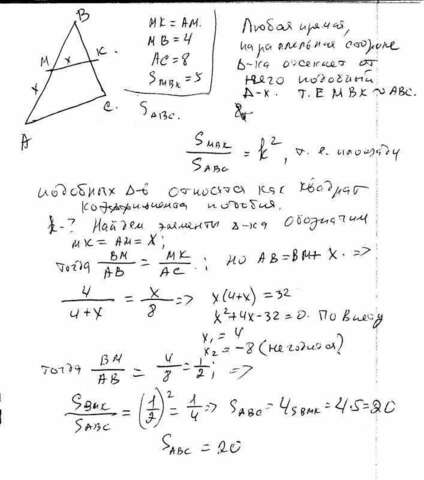 B
M x K.
x
A
C.
MK = AM.
MB = 4
AC = 8
S MBK = 5
S ABC.
Любая прямая,
параллельная стороне
Δ-ка отсекает от
него подобный
Δ-к. Т.Е MBK ~ ABC.
S MBK / S ABC = k², т.е. площади
подобных Δ-в относятся как квадрат
коэффициента подобия.
k-? Найдем элементы Δ-ка обозначим
MK = AM = X;
тогда BM / AB = MK / AC; но AB = BM + X. =>
4 / 4+x = x / 8 => x(4+x) = 32
x² + 4x - 32 = 0. По Виету
x₁ = 4
x₂ = -8 (не годится)
тогда BM / AB = 4 / 8 = 1 / 2; =>
S BMK / S ABC = (1/2)² = 1/4 => S ABC = 4 S BMK = 4·5 = 20
S ABC = 20